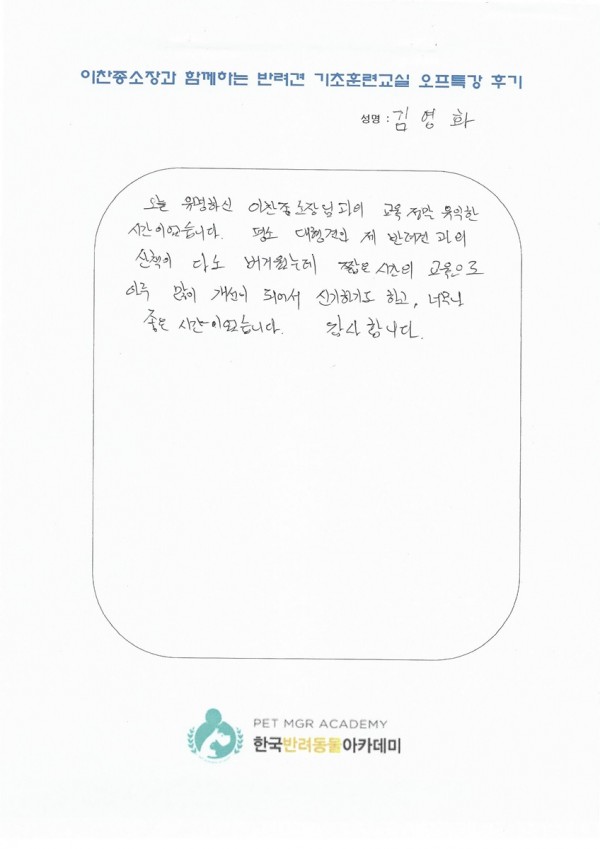 이찬종소장과 함께하는 반려견 기초훈련교실 오프특강 후기
성명 : 김영화
오늘 유명하신 이찬종소장님과의 교육 정말 유익한
시간이었습니다. 평소 대형견인 제 반려견과의
산책이 다소 버거웠는데 짧은 시간의 교육으로
아주 많이 개선이 되어서 신기하기도 하고, 너무나
좋은 시간이었습니다. 감사합니다.
PET MGR ACADEMY
한국반려동물아카데미